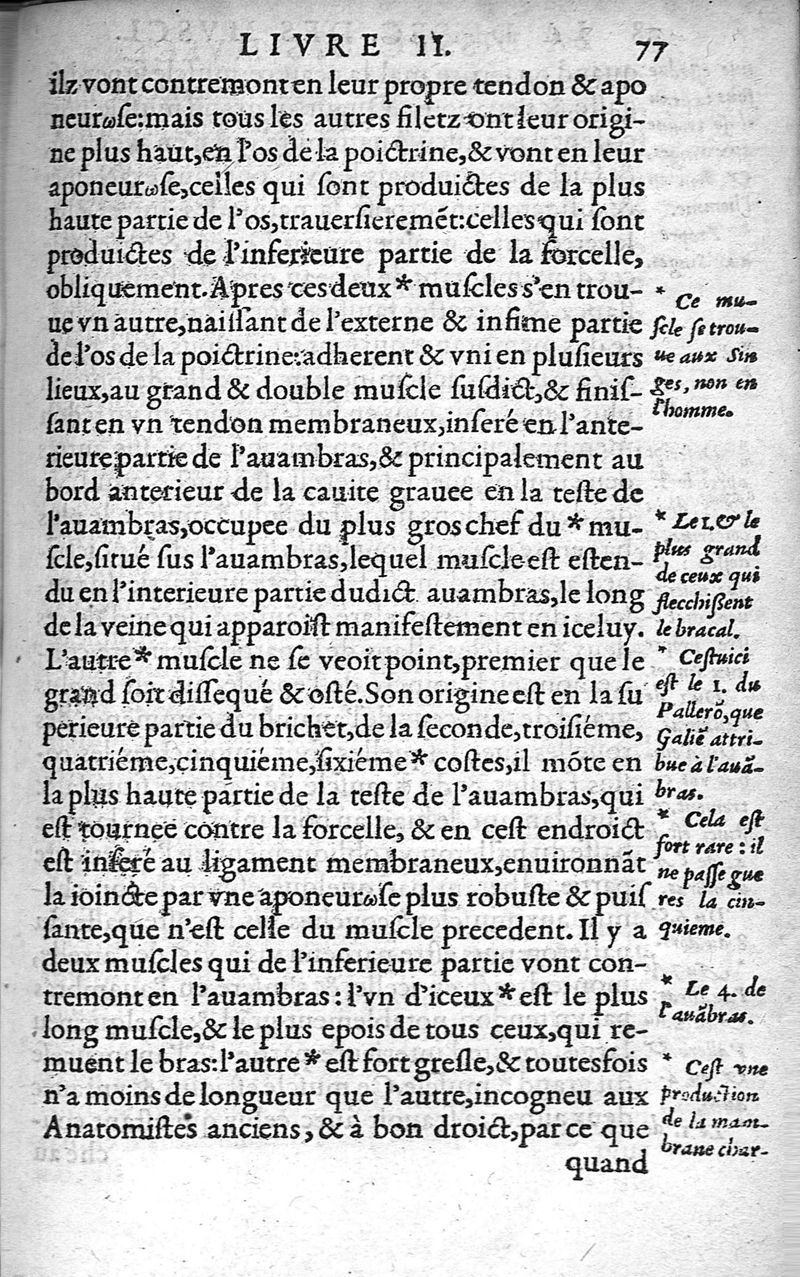 LIVRE II. 77
ilz vont contremont en leur propre tendon & apo
neurωſe: mais tous les autres filetz ont leur origi-
ne plus haut, en l'os de la poictrine, & vont en leur
aponeurωſe, celles qui ſont produictes de la plus
haute partie de l'os, trauerſieremẽt: celles qui ſont
produictes de l'inferieure partie de la forcelle,
obliquement. Apres ces deux * muſcles s'en trou-
ue vn autre, naiſſant de l'externe & infime partie
de l'os de la poictrine: adherent & vni en pluſieurs
lieux, au grand & double muſcle ſuſdict, & finiſ-
ſant en vn tendon membraneux, inſeré en l'ante-
rieure partie de l'auambras, & principalement au
bord anterieur de la cauite grauee en la teſte de
l'auambras, occupee du plus gros chef du * mu-
ſcle, ſitué ſus l'auambras, lequel muſcle eſt eſten-
du en l'interieure partie dudict auambras, le long
de la veine qui apparoiſt manifeſtement en iceluy.
L'autre * muſcle ne ſe veoit point, premier que le
grand ſoit diſſequé & oſté. Son origine eſt en la ſu
perieure partie du brichet, de la ſeconde, troiſiéme,
quatriéme, cinquiéme, ſixiéme * coſtes, il mõte en
la plus haute partie de la teſte de l'auambras, qui
eſt tournee contre la forcelle, & en ceſt endroict
eſt inſeré au ligament membraneux, enuironnãt
la ioincte par vne aponeurωſe plus robuſte & puiſ
ſante, que n'eſt celle du muſcle precedent. Il y a
deux muſcles qui de l'inferieure partie vont con-
tremont en l'auambras: l'vn d'iceux * eſt le plus
long muſcle, & le plus epois de tous ceux, qui re-
muent le bras: l'autre * eſt fort greſle, & toutesfois
n'a moins de longueur que l'autre, incogneu aux
Anatomiſtes anciens, & à bon droict, par ce que
quand
* Ce mu-
ſcle ſe trou-
ue aux Sin
ges, non en
l'homme.
* Le 1. & le
plus grand
de ceux qui
flecchiſſent
le bracal.
* Ceſtuici
eſt le 1. du
Pallerõ, que
Galiẽ attri-
bue à l'auã-
bras.
* Cela eſt
fort rare: il
ne paſſe gue
res la cin-
quieme.
* Le 4. de
l'auãbras.
* Ceſt vne
production
de la mam-
brane char-